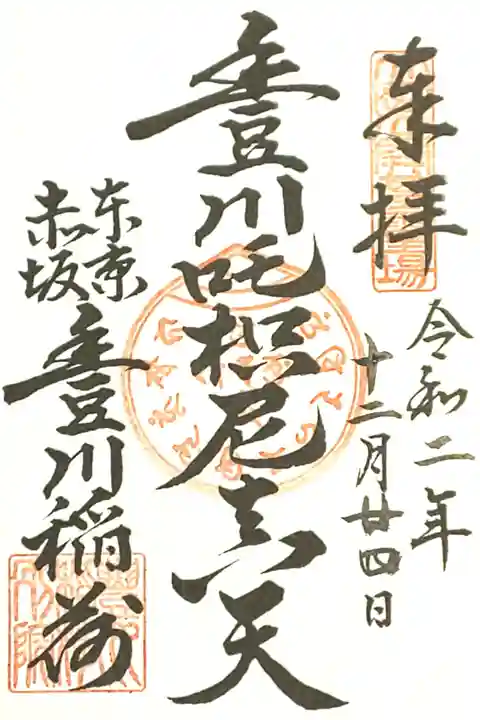 奉拝
令和二年
十二月廿四日
豊川吒枳尼真天
東京
赤坂
豊川稲荷